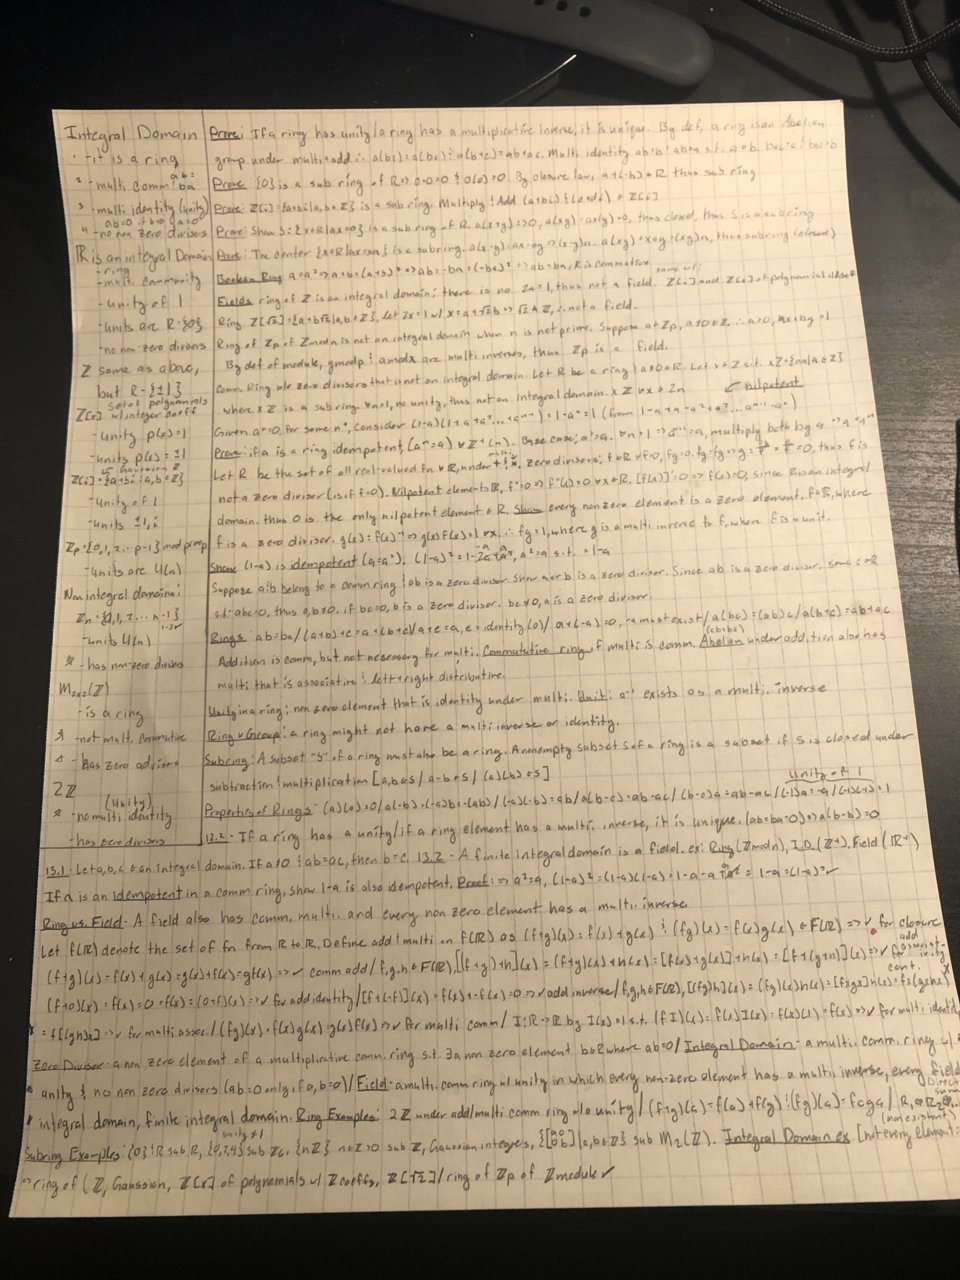 Integral Domain
- it is a ring
- multi comm ab=ba
- multi identity (unity)
ab=0 → b=0, a=0
- no non zero divisors
ℝ is an Integral Domain
- ring
- multi commutity
- unity of 1
- units are R-{0}
- no non-zero divisors
ℤ same as above,
but R-{±1}
ℤ[x] set of polygnomials w/ integer coeff
- unity p(x)=1
- units p(x)=±1
ℤ[i]={a+bi|a,b∈ℤ} Gaussian ℤ
- unity of 1
- units ±1, i
ℤp={0,1,2...p-1} mod p
- units are U(n)
Non integral domains:
ℤn={0,1,2...n-1}
- units U(n)
- has non-zero divisors
M2x2(ℤ)
- is a ring
- not mult. commutative
- has zero advisors
2ℤ
(Unity)
- no multi identity
- has zero divisors
Prove: If a ring has unity/a ring has a multiplicative inverse, it is unique. By def, a ring is an Abelian
group under multi+add ∴ a(bc)=a(bc) a(b+c)=ab+ac. Multi identity
Prove {0} is a sub ring of R ⇒ 0-0=0 & 0(0)=0. By closure law, a+(-b)∈R thus sub ring
Prove: ℤ[i]={a+bi|a,b∈ℤ} is a sub ring. Multiply & Add (a+bi) & (c+di) ∈ ℤ[i]
Prove: Show S={x∈R|ax=0} is a sub ring of R. a(xy)=0, thus closed, thus S is a subring
Prove: The center {x∈R|ax=xa} is a subring. thus subring (closed)
Boolean Ring a=a² ⇒ a+b=(a+b)² ⇒ ab=-ba=(-ba)² ⇒ ab=ba, R is commutative
Fields ring of ℤ is an integral domain; there is no 2a=1, thus not a field. ℤ[i] and ℤ[x] of polynomial
Ring ℤ[√2]={a+b√2|a,b∈ℤ}, Let 2x=1 w/ x=a+√2b ∴ not a field.
Ring of ℤp of ℤmodn is not an integral domain when n is not prime. Suppose a∈ℤp, a≠0
By def of module, ymodp & amodx are multi inverses, thus ℤp is a field.
Comm Ring w/o zero divisors that is not an integral domain. Let R be a ring & a≠0∈R. Let x∈ℤ s.t. xℤ={na|a∈ℤ}
where xℤ is a subring ∀n>1, no unity, thus not an integral domain. xℤ ∀x∈2n
nilpotent
Given aⁿ=0 for some n⁺, consider (1-a)(1+a+a²+...aⁿ⁻¹)=1-aⁿ=1
Prove: if a is a ring idempotent, (aⁿ=a) ∀ℤ⁺(n). Base case; a'=a. ∀n>1 ⇒ aⁿ⁻¹=a, multiply both by a
Let R be the set of all real-valued fn ∀ℝ, under multi + x. zero divisors: thus f is
not a zero diviser (is if f=0). Nilpotent elements R, fⁿ=0 ⇒ fⁿ(x)=0 ∀x∈R. [f(x)]ⁿ=0 ⇒ f(x)=0, since R is an integral
domain. thus 0 is the only nilpotent element ∈ R. Show every nonzero element is a zero element. f∈R, where
f is a zero diviser. g(x)=f(x)⁻¹ ⇒ g(x)f(x)=1 ∀x ∴ fg=1, where g is a multi inverse to f, where f is a unit.
Show (1-a) is idempotent (a=a²). (1-a)²=1-2a+a², a²=a s.t. =1-a
Suppose a;b belong to a comm ring & ab is a zero divisor. Show a or b is a zero divisor. Since ab is a zero divisor, some c≠0,
s.t. abc=0, thus a,b≠0. if bc=0, b is a zero divisor. bc≠0, a is a zero divisor.
Rings ab=ba/(a+b)+c=a+(b+c)/a+e=a, e=identity(0)/a+(-a)=0, -a must exist/a(bc)=(ab)c/a(b+c)=ab+ac
Addition is comm, but not necessary for multi. Commutative ring if multi is comm. (ab=ba) Abelian under add, then also has
multi that is associative & left+right distributive.
Unity in a ring: non zero element that is identity under multi. Unit: a⁻¹ exists as a multi. inverse
Ring v Group: a ring might not have a multi inverse or identity.
Subring: A subset "S" of a ring must also be a ring. A nonempty subset S of a ring is a subset if S is closed under
subtraction & multiplication [a,b∈S/a-b∈S/(a)(b)∈S]
Unity of 1
Properties of Rings: (a)(0)=0/a(-b)=(-a)b=-(ab)/(-a)(-b)=ab/a(b-c)=ab-ac/(b-c)a=ab-ac/(-1)a=-a/(-1)(-1)=1
12.2 - If a ring has a unity/if a ring element has a multi. inverse, it is unique. (ab=ba=0) ⇒ a(b-b)=0
13.1: Let a,b,c ∈ an integral domain. If a≠0 & ab=ac, then b=c. 13.2 - A finite integral domain is a field. ex: Ring(ℤmodn), I.D.(ℤ⁺), Field (ℝ⁺)
If A is an idempotent in a comm ring, show 1-a is also idempotent. Proof: ⇒ a²=a, (1-a)²=(1-a)(1-a)=1-a-a+a²=1-a=(1-a)²✓
Ring vs. Field - A field also has comm. multi. and every non zero element has a multi. inverse
Let f(ℝ) denote the set of fn from ℝ to ℝ. Define add & multi on f(ℝ) as (f+g)(x)=f(x)+g(x) & (fg)(x)=f(x)g(x) ∈ F(ℝ) ⇒ ✓ for closure
(f+g)(x)=f(x)+g(x)=g(x)+f(x)=gf(x) ⇒ ✓ comm add/f,g,h∈F(ℝ), [(f+g)+h](x)=(f+g)(x)+h(x)=[f(x)+g(x)]+h(x)=[f+(g+h)](x) ⇒ ✓ for add associativity
(f+0)(x)=f(x)+0=f(x)=(0+f)(x) ⇒ ✓ for add identity/[f+(-f)](x)=f(x)+-f(x)=0 ⇒ ✓ add inverse/f,g,h∈F(ℝ), [(fg)h](x)=(fg)(x)h(x)=[fxgx]h(x)=fx(gxhx) cont.
=f[(gh)x] ⇒ ✓ for multi assoc./(fg)(x)=f(x)g(x)=g(x)f(x) ⇒ ✓ for multi comm/I:ℝ→ℝ by I(x)=1 s.t. (fI)(x)=f(x)I(x)=f(x)(1)=f(x) ⇒ ✓ for multi identity
Zero Divisor: a non zero element of a multiplicative comm. ring s.t. ∃ a non zero element b∈R where ab=0/Integral Domain - a multi. comm. ring w/
unity & no non zero divisors (ab=0 only if a,b=0)/Field - a multi. comm ring w/ unity in which every non-zero element has a multi inverse, every field
integral domain, finite integral domain. Ring Examples: 2ℤ under add/multi comm ring w/o unity/(f+g)(a)=f(a)+f(g) & (fg)(a)=fcga/R,⊕R₂⊕... Direct sum
(non existant)
Subring Examples: {0} & R sub R, {0,2,4} sub ℤ6, unity ≠1 {nℤ} n∈ℤ>0 sub ℤ, Gaussian integers, {[a0 0b]|a,b∈ℤ} sub M₂(ℤ). Integral Domain ex [not every element=
ring of (ℤ, Gaussian, ℤ[x] of polynomials w/ ℤ coeffs, ℤ[√2]/ring of ℤp of ℤmodule ✓